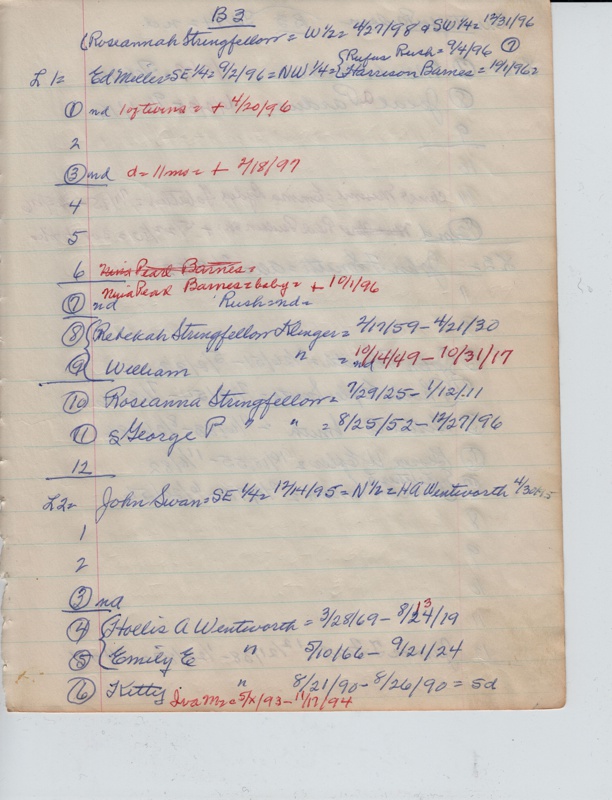 B3
(Roseannah Stringfellow = W 1/2 = 4/27/98 + SW 1/4 = 12/31/96
{Rufus Rush = 9/4/96 ⑦
L1 = Ed Miller = SE 1/4 = 9/2/96 = NW 1/4 = {Harrison Barnes = 10/1/96 =
① nd 1 of twins = + 4/20/96
2
③ nd d = 11 mo = + 2/18/97
4
5
6 Pearl Barnes =
Nina Pearl Barnes = baby = + 10/1/96
⑦ nd Rush = nd =
⑧ {Rebekah Stringfellow Klinger = 2/17/59 - 4/21/30
⑨ { William " = 10/14/49 - 10/31/17
nd
⑩ Roseanna Stringfellow = 7/29/25 - 1/12/11
⑪ George P " " = 8/25/52 - 12/27/96
12
L2 = John Swan = SE 1/4 = 12/14/95 = N 1/2 = HA Wentworth
1
2
③ nd
④ {Hollis A Wentworth = 3/28/69 - 8/24/19
13
⑤ {Emily E " 5/10/66 - 9/21/24
⑥ Kitty " 8/21/90 - 8/26/90 = sd
Iva M = 5/x/93 - 11/17/94